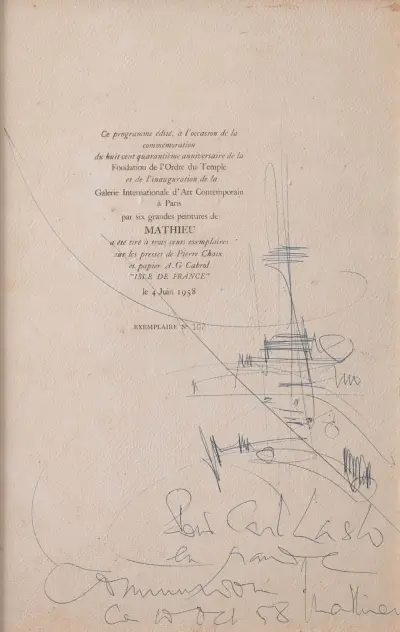 Ce programme édité, à l'occasion de la
commémoration
du huit cent quarantième anniversaire de la
Fondation de l'Ordre du Temple
et de l'inauguration de la
Galerie Internationale d'Art Contemporain
à Paris
par six grandes peintures de
MATHIEU
a été tiré à trois cents exemplaires
sur les presses de Pierre Chave
et papier A.G Cabrol
"ISLE DE FRANCE"
le 4 Juin 1958
EXEMPLAIRE N°
Pour Carl Laszlo
en grande
Communion
Ce 10 Oct 58 Mathieu